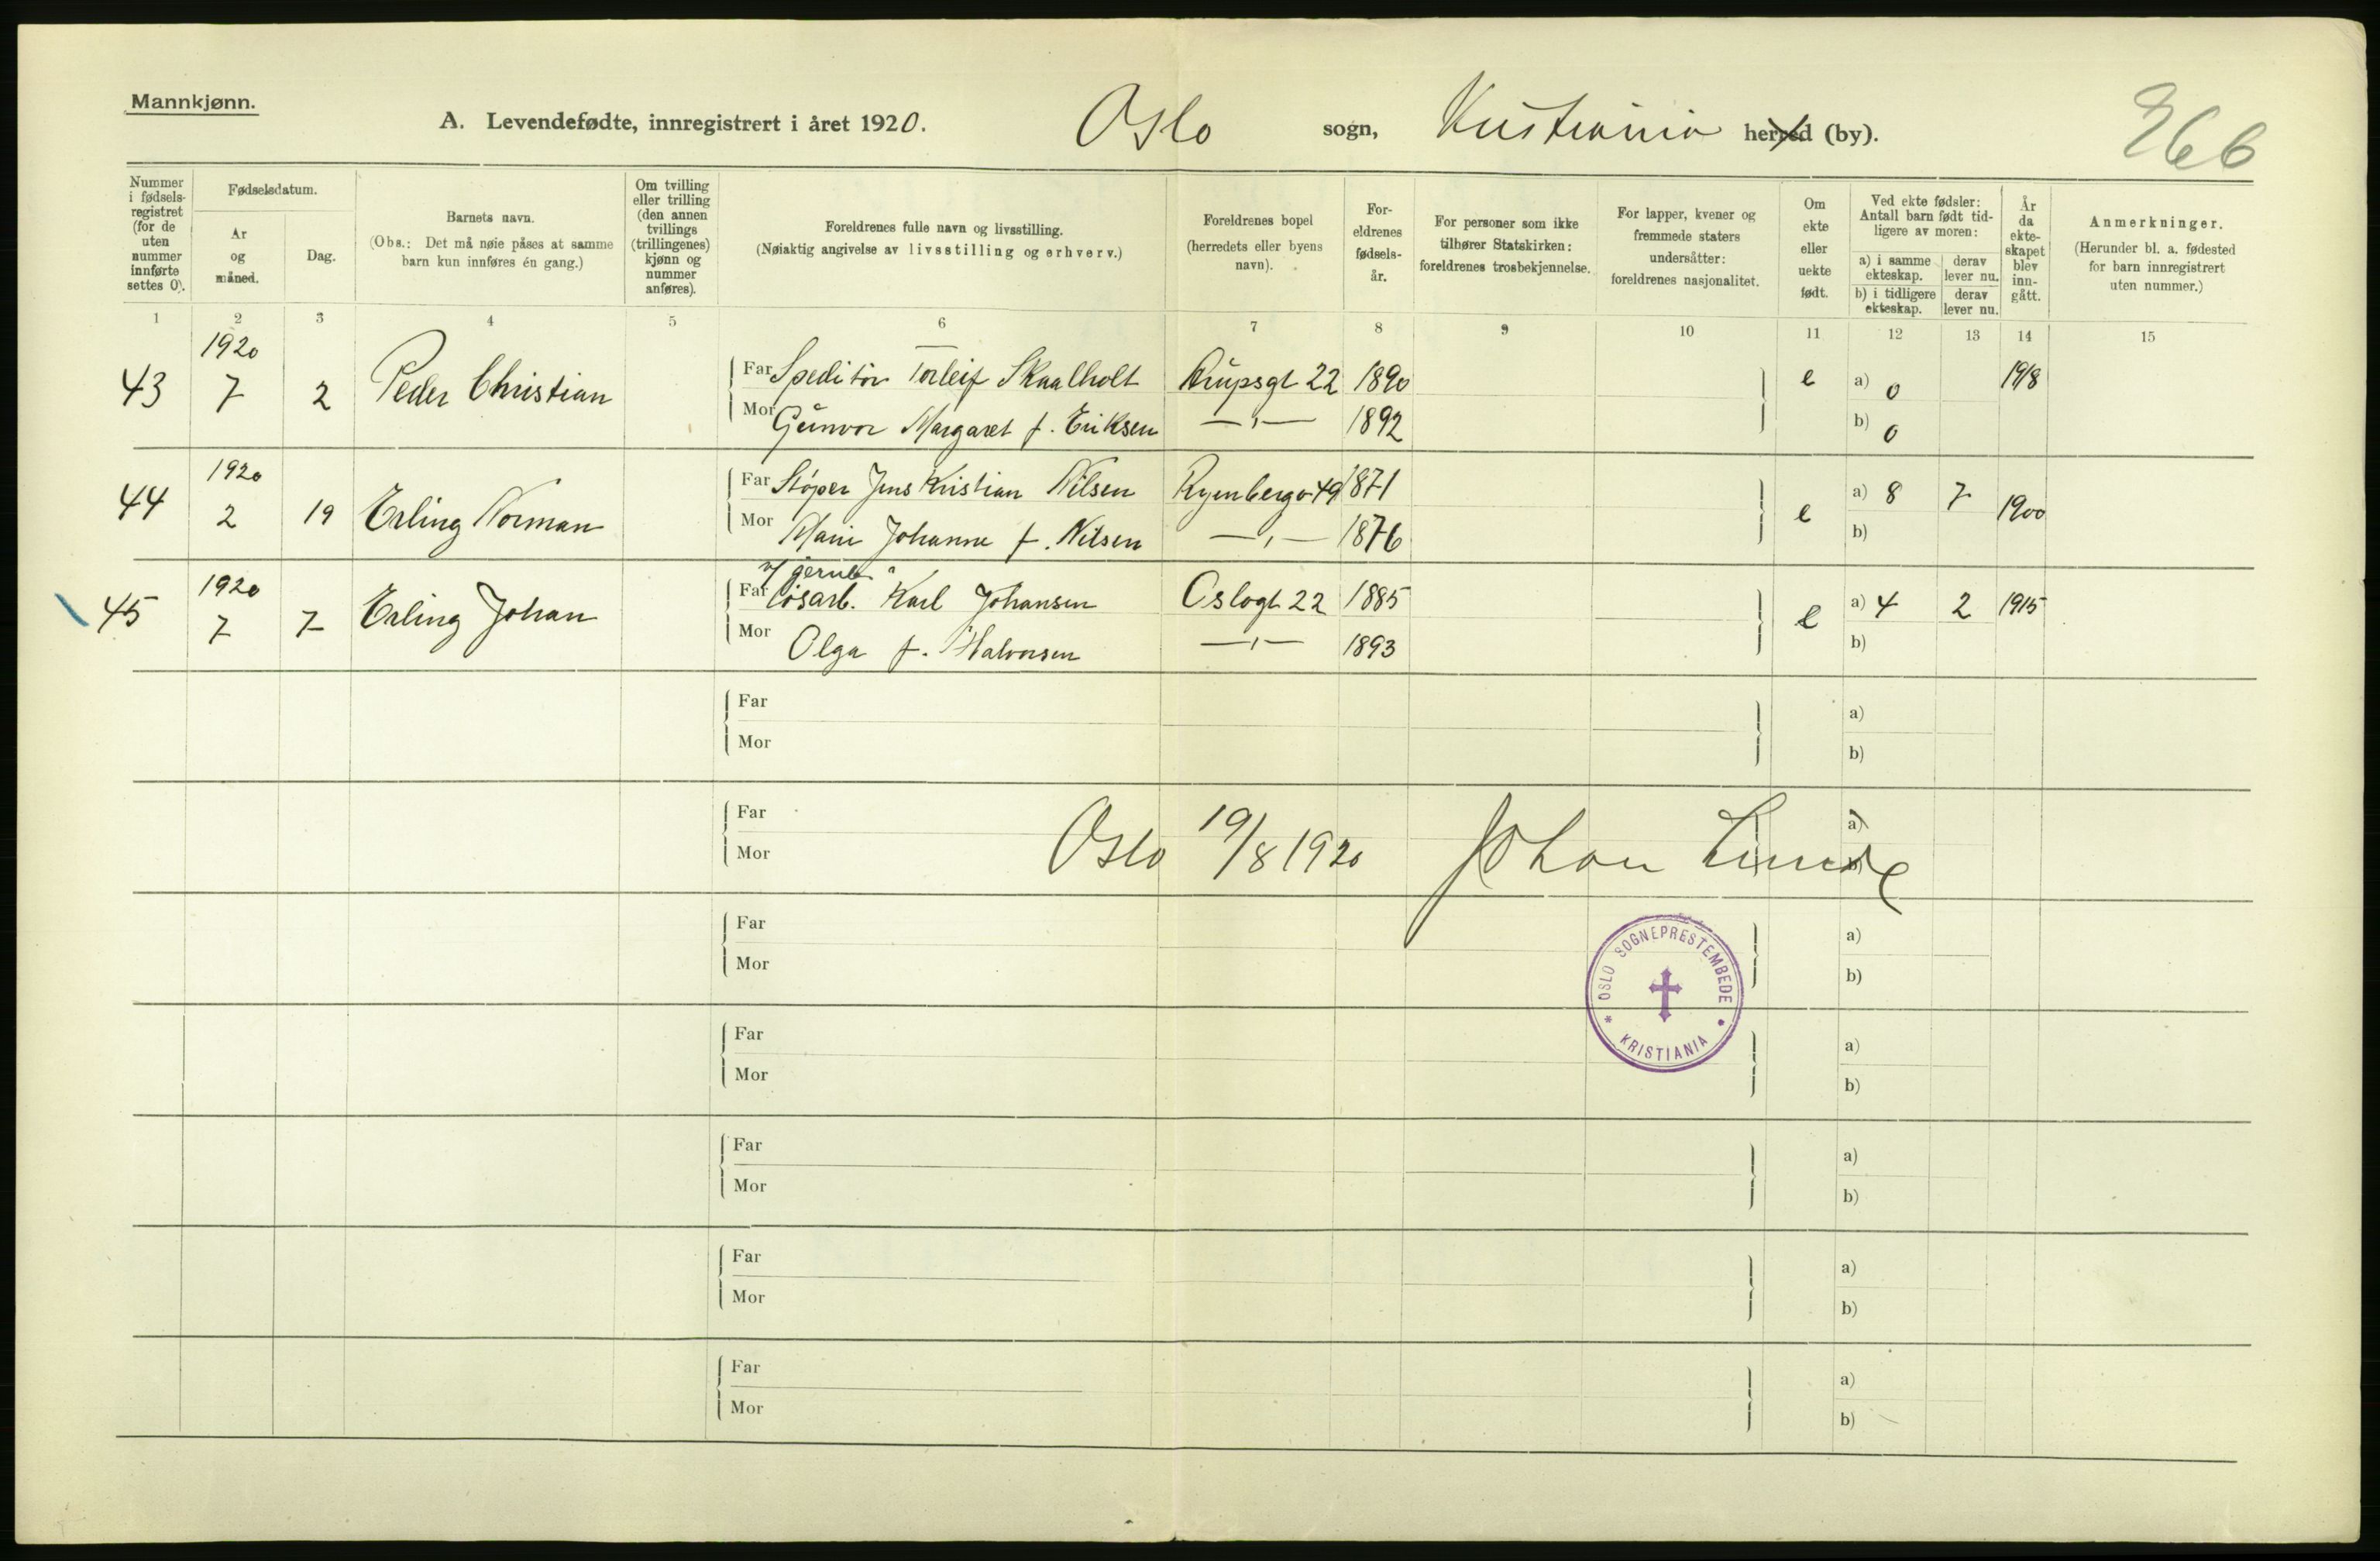 Mannkjønn.
A. Levendefødte, innregistrert i året 1920. Oslo sogn, Kristiania herred (by).
366
Nummer i fødselsregistret (for de uten nummer innførte settes 0).
Fødselsdatum.
År og måned.
Dag.
Barnets navn.
(Obs.: Det må nøie påses at samme barn kun innføres én gang.)
Om tvilling eller trilling (den annen tvillings (trillingenes) kjønn og nummer anføres).
Foreldrenes fulle navn og livsstilling.
(Nøiaktig angivelse av livsstilling og erhverv.)
Foreldrenes bopel (herredets eller byens navn).
Foreldrenes fødselsår.
For personer som ikke tilhører Statskirken: foreldrenes trosbekjennelse.
For lapper, kvener og fremmede staters undersåtter: foreldrenes nasjonalitet.
Om ekte eller uekte født.
Ved ekte fødsler: Antall barn født tidligere av moren:
a) i samme ekteskap. derav lever nu.
b) i tidligere ekteskap. derav lever nu.
År da ekteskapet blev inngått.
Anmerkninger.
(Herunder bl. a. fødested for barn innregistrert uten nummer.)
1 2 3 4 5 6 7 8 9 10 11 12 13 14 15
1920
43 7 2 Peder Christian Far Speditør Torleif Skaalholt Arupsgt 22 1890 e a) 0 1918
Mor Gunvor Margaret f. Eriksen —"— 1892 b) 0
1920
44 2 19 Erling Norman Far Støper Jens Kristian Nilsen Ryenbergv 49 1871 e a) 8 7 1900
Mor Marie Johanne f. Nilsen —"— 1876 b)
1920
v/ jernb.
45 7 7 Erling Johan Far løsarb. Karl Johansen Oslogt 22 1885 e a) 4 2 1915
Mor Olga f. Halvorsen —"— 1893 b)
Far a)
Mor b)
Far a)
Oslo 19/8 1920 Johan Lunde
Mor
Far a)
Mor b)
OSLO SOGNEPRESTEMBEDE
* KRISTIANIA •
Far a)
Mor b)
Far a)
Mor b)
Far a)
Mor b)
Far a)
Mor b)